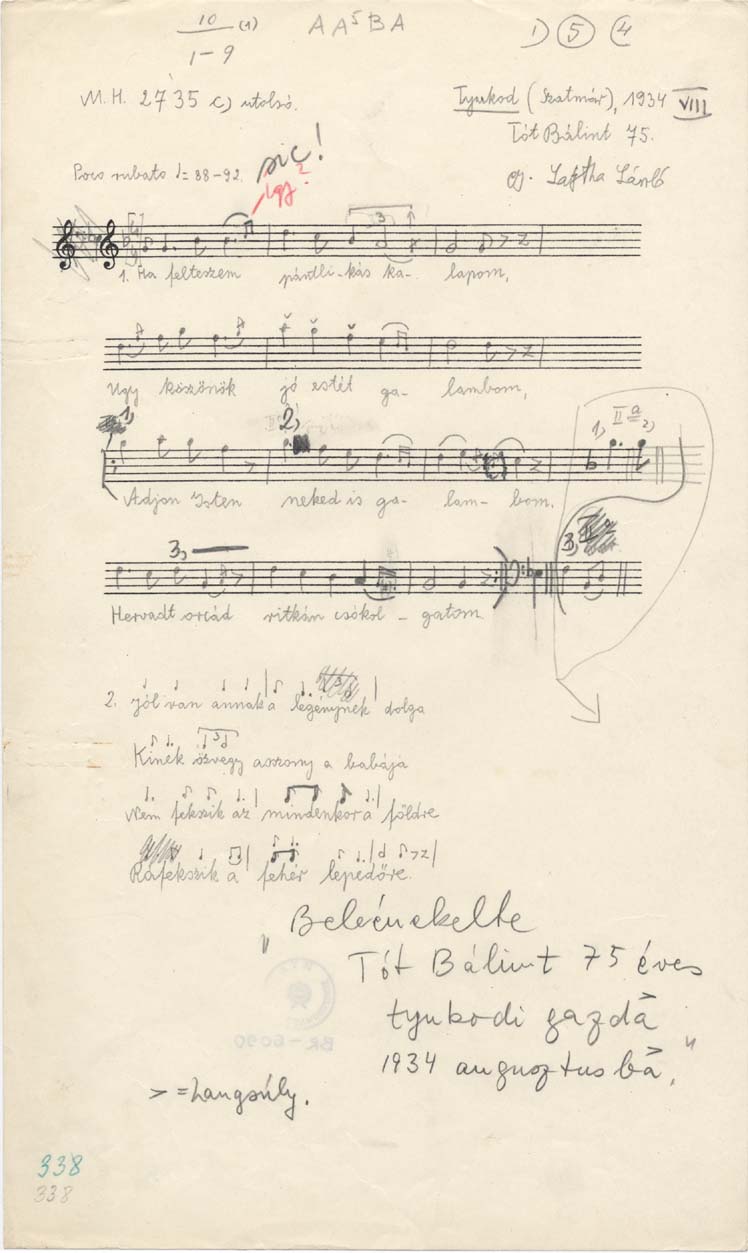 10 (1)
1-9
A A⁵ B A
1) 5 4
M. H. 2735 c) utolsó.
Tyukod (Szatmár), 1934 VIII
Tót Bálint 75.
Poco rubato ♩= 88-92.
sic!
így?
gy. Lajtha László
3
1. Ha felteszem pántli-kás ka- lapom,
Ugy köszönök jó estét ga- lambom,
1, 2, 1, II a 2,
Adjon Isten neked is ga- lam- bom.
3, 3,
Hervadt orcád ritkán csókol - gatom.
2. Jól van annak a legénynek dolga
3
Kinek özvegy asszony a babája
Nem fekszik az mindenkor a földre
Ráfekszik a fehér lepedőre.
„Beleénekelte
Tót Bálint 75 éves
tyukodi gazda
1934 augusztusba,"
> = hangsúly.
BR-6090
338
338